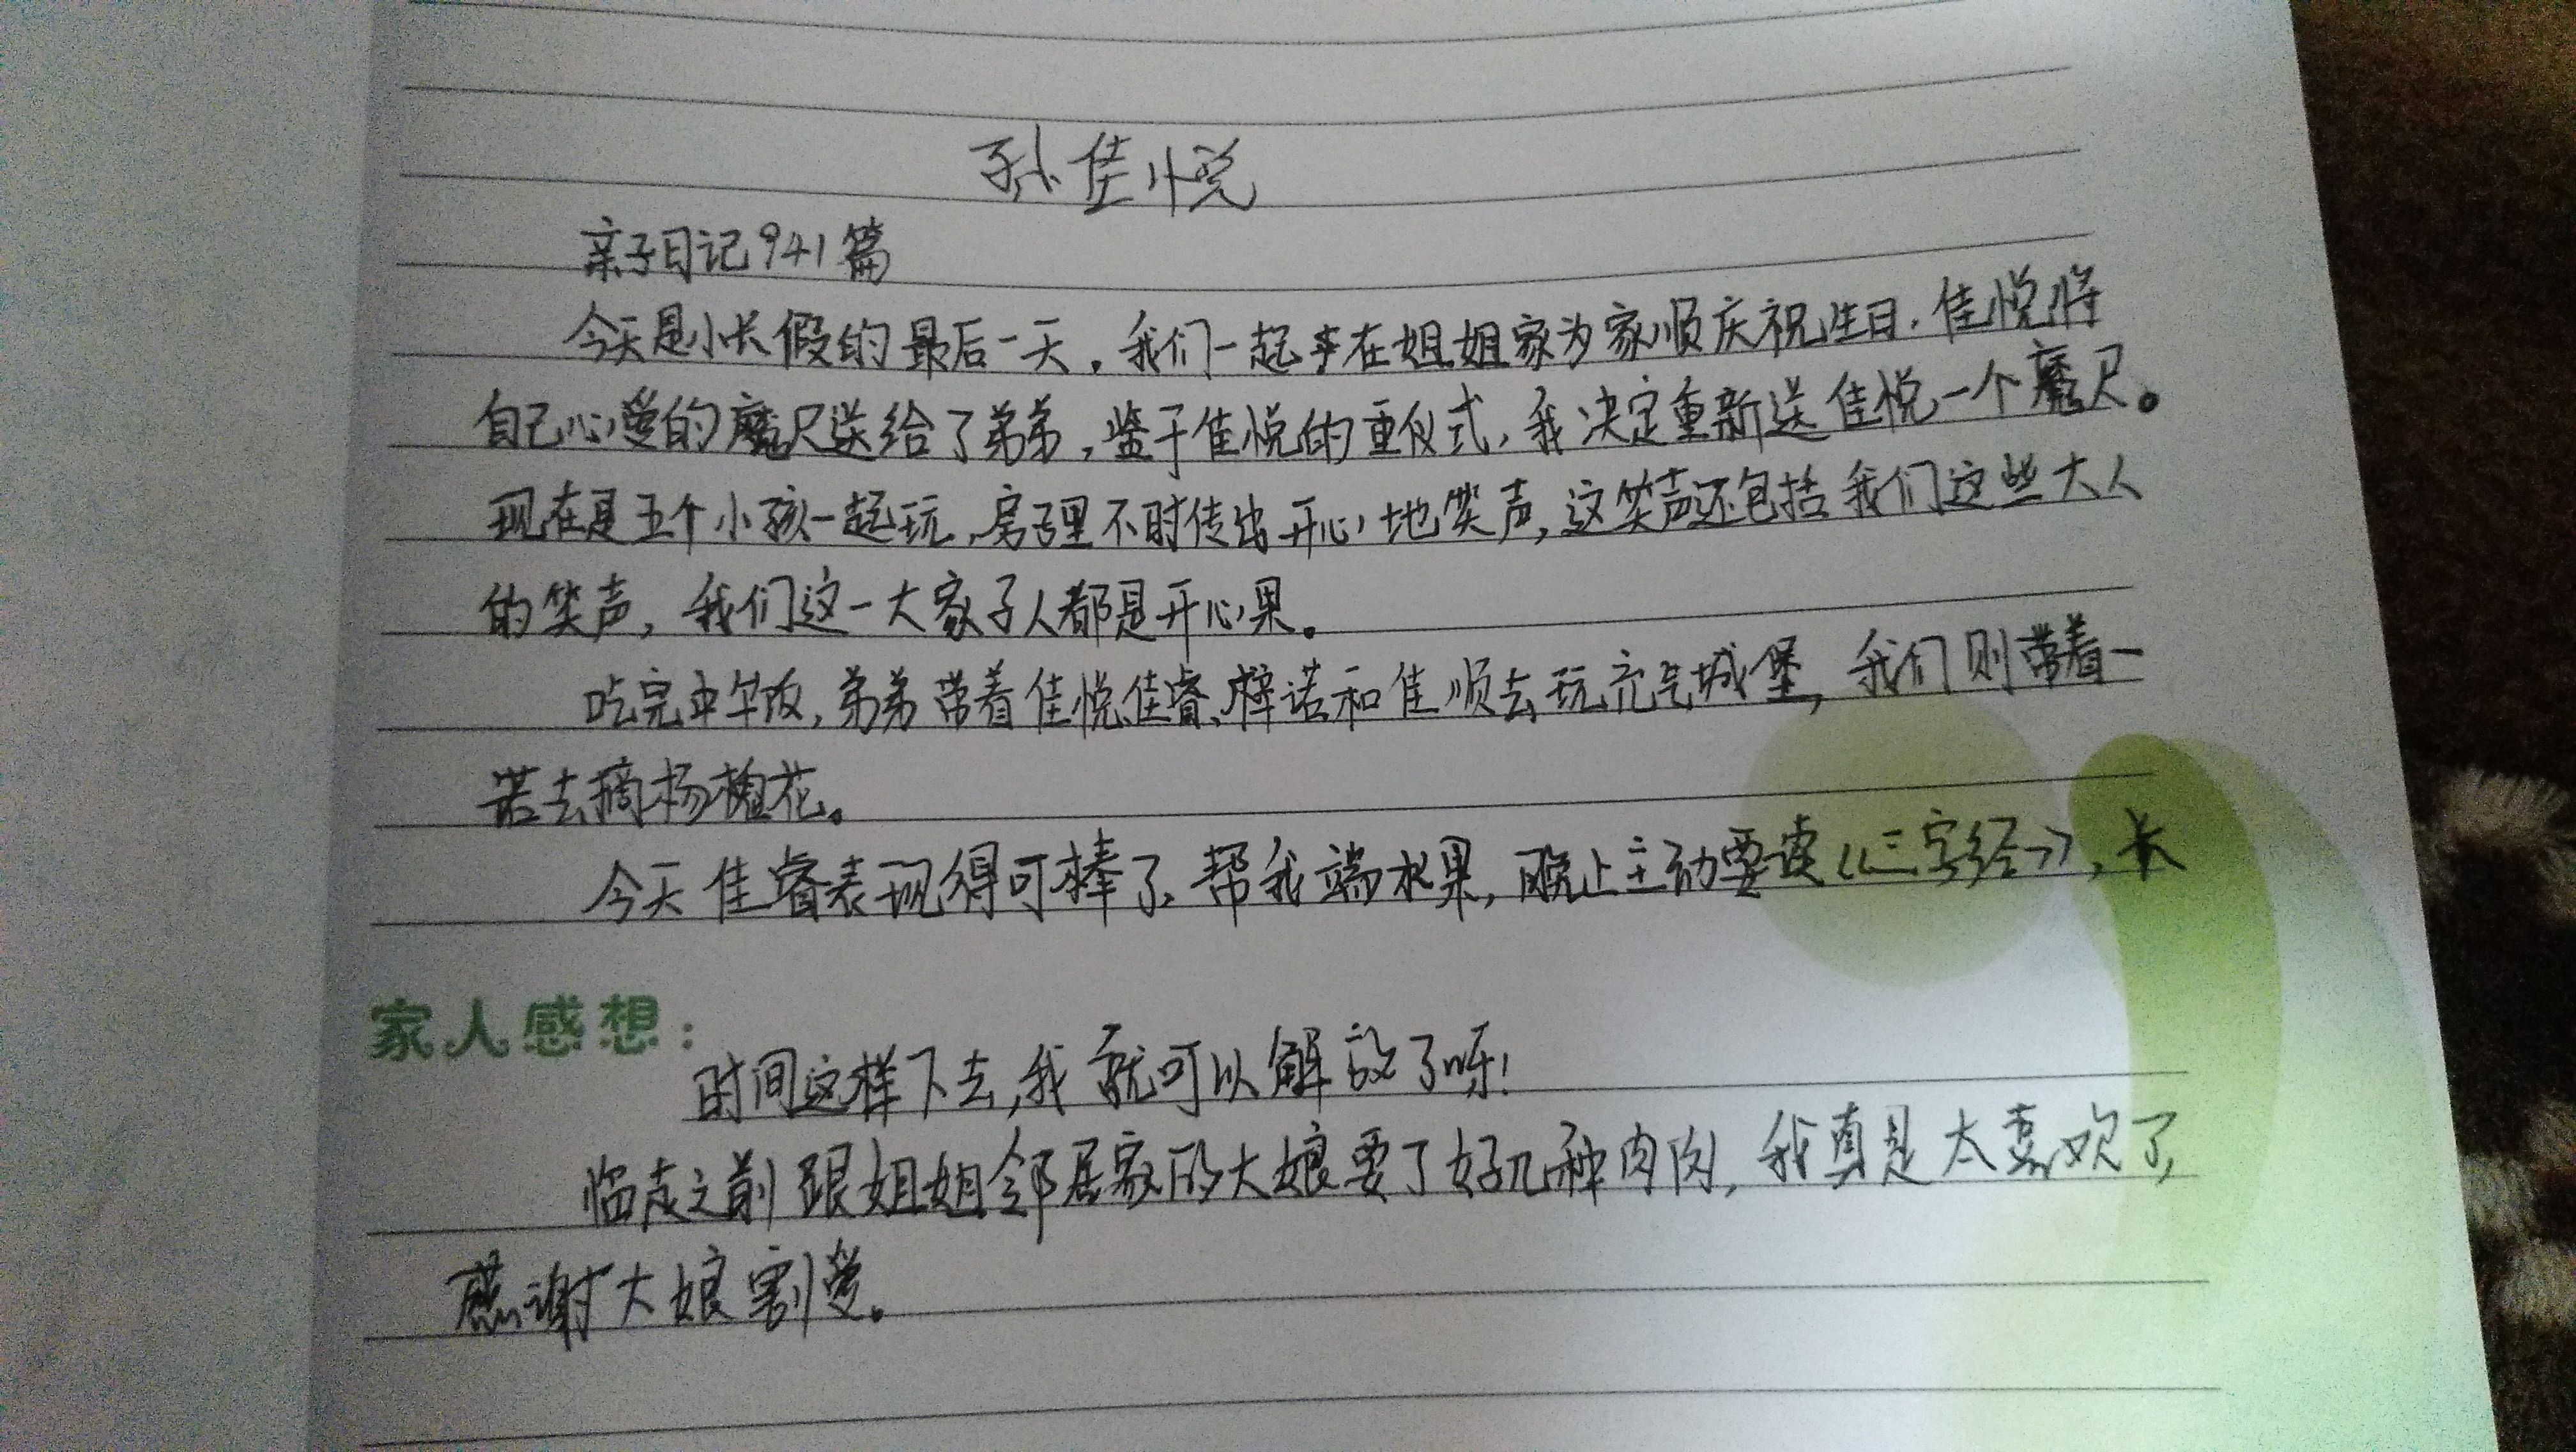 孙佳悦
亲子日记941篇
今天是小长假的最后一天，我们一起在姐姐家为家顺庆祝生日，佳悦将
自己心爱的魔尺送给了弟弟，鉴于佳悦的重仪式，我决定重新送佳悦一个魔尺。
现在是五个小孩一起玩，房子里不时传出开心地笑声，这笑声还包括我们这些大人
的笑声，我们这一大家子人都是开心果。
吃完中午饭，弟弟带着佳悦、佳睿、梓诺和佳顺去玩充气城堡，我们则带着一
诺去摘杨槐花。
今天佳睿表现得可棒了，帮我端水果，晚上主动要读《三字经》，长
家人感想：
时间这样下去，我就可以解放了呀！
临走之前跟姐姐邻居家的大娘要了好几种肉肉，我真是太喜欢了，
感谢大娘割爱。